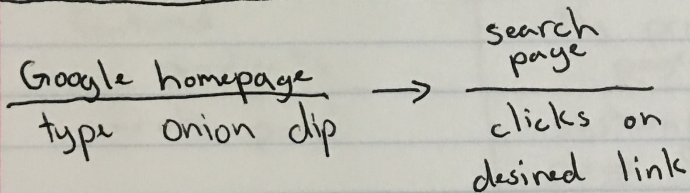 Google homepage
type onion dip
→
search
page
clicks on
desired link